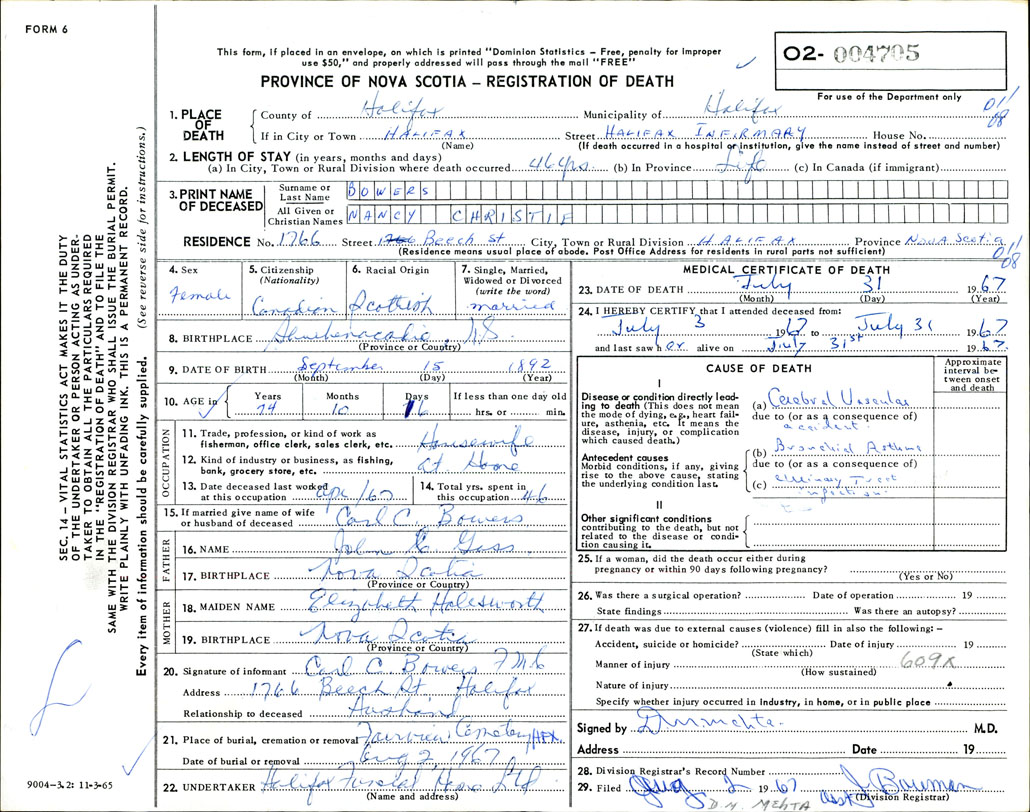 FORM 6
This form, if placed in an envelope, on which is printed "Dominion Statistics – Free, penalty for improper
use $50," and properly addressed will pass through the mail "FREE"
O2- 004705
PROVINCE OF NOVA SCOTIA – REGISTRATION OF DEATH
For use of the Department only
SEC. 14 – VITAL STATISTICS ACT MAKES IT THE DUTY
OF THE UNDERTAKER OR PERSON ACTING AS UNDER-
TAKER TO OBTAIN ALL THE PARTICULARS REQUIRED
IN THE "REGISTRATION OF DEATH" AND TO FILE THE
SAME WITH THE DIVISION REGISTRAR WHO SHALL ISSUE THE BURIAL PERMIT.
WRITE PLAINLY WITH UNFADING INK. THIS IS A PERMANENT RECORD.
Every item of information should be carefully supplied. (See reverse side for instructions.)
1. PLACE OF DEATH
County of Halifax Municipality of Halifax 011/08
If in City or Town HALIFAX Street HALIFAX INFIRMARY House No.
(Name) (If death occurred in a hospital or institution, give the name instead of street and number)
2. LENGTH OF STAY (in years, months and days)
(a) In City, Town or Rural Division where death occurred 46 yrs. (b) In Province Life (c) In Canada (if immigrant)
3. PRINT NAME OF DECEASED
Surname or Last Name BOWERS
All Given or Christian Names NANCY CHRISTIE
RESIDENCE No. 1766 Street Beech St City, Town or Rural Division HALIFAX Province NOVA SCOTIA
(Residence means usual place of abode. Post Office Address for residents in rural parts not sufficient) 011/08
4. Sex Female
5. Citizenship (Nationality) Canadian
6. Racial Origin Scottish
7. Single, Married, Widowed or Divorced (write the word) married
8. BIRTHPLACE Shubenacadie, N.S.
(Province or Country)
9. DATE OF BIRTH September 15 1892
(Month) (Day) (Year)
10. AGE in Years 74 Months 10 Days 16 If less than one day old hrs. or min.
OCCUPATION
11. Trade, profession, or kind of work as fisherman, office clerk, sales clerk, etc. Housewife
12. Kind of industry or business, as fishing, bank, grocery store, etc. at Home
13. Date deceased last worked at this occupation Apr /67
14. Total yrs. spent in this occupation 46
15. If married give name of wife or husband of deceased Carl C. Bowers
FATHER
16. NAME John
17. BIRTHPLACE Nova Scotia
(Province or Country)
MOTHER
18. MAIDEN NAME Elizabeth Holesworth
19. BIRTHPLACE Nova Scotia
(Province or Country)
20. Signature of informant Carl C Bowers
Address 1766 Beech St. Halifax
Relationship to deceased Husband
21. Place of burial, cremation or removal Fairview Cemetery HFX.
Date of burial or removal Aug 2, 1967
22. UNDERTAKER Halifax Funeral Home Ltd
(Name and address)
9004–3.2: 11-3-65
MEDICAL CERTIFICATE OF DEATH
23. DATE OF DEATH July 31 1967
(Month) (Day) (Year)
24. I HEREBY CERTIFY that I attended deceased from:
July 3 1967 to July 31 1967
and last saw her alive on July 31st 1967
CAUSE OF DEATH
Approximate interval between onset and death
I
Disease or condition directly lead-
ing to death (This does not mean
the mode of dying, e.g., heart fail-
ure, asthenia, etc. It means the
disease, injury, or complication
which caused death.)
(a) Cerebral Vascular
due to (or as a consequence of)
accident.
Antecedent causes
Morbid conditions, if any, giving
rise to the above cause, stating
the underlying condition last.
(b) Bronchial Asthma
due to (or as a consequence of)
(c) Urinary Tract
infection
II
Other significant conditions
contributing to the death, but not
related to the disease or condi-
tion causing it.
25. If a woman, did the death occur either during
pregnancy or within 90 days following pregnancy?
(Yes or No)
26. Was there a surgical operation? Date of operation 19
State findings Was there an autopsy?
27. If death was due to external causes (violence) fill in also the following: –
Accident, suicide or homicide? Date of injury 19
(State which)
Manner of injury 609X
(How sustained)
Nature of injury
Specify whether injury occurred in industry, in home, or in public place
Signed by D M Mehta. M.D.
Address Date 19
28. Division Registrar's Record Number
29. Filed Aug 2 1967 J Bowman
Asst (Division Registrar)
D.M. MEHTA